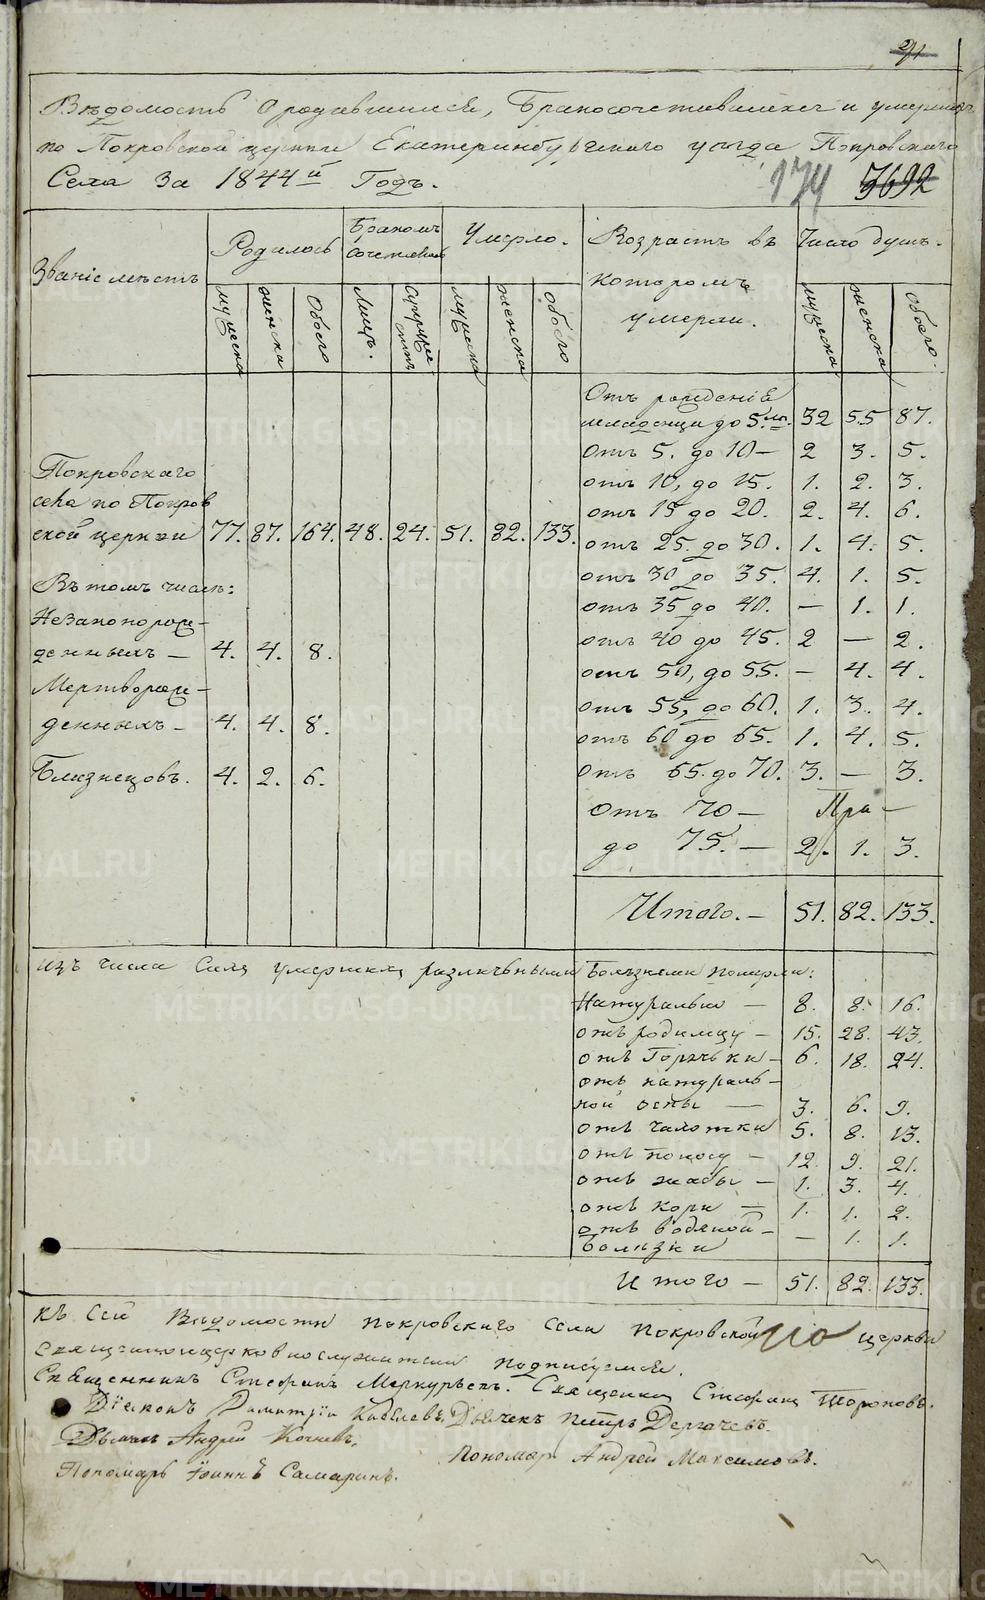 21
Вѣдомость о родившихся, Бракосочетавшихся и умершихъ
по Покровской церкви Екатеринбургскаго уѣзда Покровскаго
Села За 1844й Годъ.
174 3692
Званіе мѣстъ
Родилось
Бракомъ сочетавш.
Умерло.
Возрастъ въ которомъ умерли.
Число душъ.
мужеска женска Обоего Лицъ. мужеска женска обоего мужеска женска Обоего.
Отъ рожденія
младенцы до 5. лѣт. 32 55 87.
отъ 5. до 10 — 2 3. 5.
отъ 10, до 15. 1. 2. 3.
отъ 15 до 20. 2. 4. 6.
отъ 25. до 30. 1. 4. 5.
отъ 30 до 35. 4. 1. 5.
отъ 35 до 40. — 1. 1.
отъ 40 до 45. 2 — 2.
отъ 50, до 55. — 4. 4.
отъ 55, до 60. 1. 3. 4.
отъ 60 до 65. 1. 4. 5.
отъ 65. до 70. 3. — 3.
отъ 70, —
до 75. — 2. 1. 3.
Итого. — 51. 82. 133.
Покровскаго
села по Покров
ской церкви 77. 87. 164. 48. 24. 51. 82. 133.
Въ томъ числѣ:
Незаконорож-
денныхъ — 4. 4. 8.
Мертворож-
денныхъ — 4. 4. 8.
Близнецовъ. 4. 2. 6.
изъ числа сихъ умершихъ различными Болѣзнями померли:
Натурально — 8. 8. 16.
отъ родимцу — 15. 28. 43.
отъ Горячьки — 6. 18. 24.
отъ натураль-
ной оспы — 3. 6. 9.
отъ чахотки 5. 8. 13.
отъ поносу — 12. 9. 21.
отъ жабы — 1. 3. 4.
отъ кори — 1. 1. 2.
отъ водяной —
болѣзни — 1. 1.
Итого — 51. 82. 133.
Къ сей Вѣдомости Покровскаго села Покровской церкви
Священноцерковнослужители подписуемся.
Священникъ Стефанъ Меркурьевъ. Священникъ Стефанъ Тороповъ.
Діаконъ Димитрій Кибелевъ, Дьячекъ Петръ Дергачевъ.
Дьячекъ Андрей Кочневъ,
Пономарь Андрей Максимовъ.
Пономарь Іоаннъ Самаринъ.
METRIKI.GASO-URAL.RU